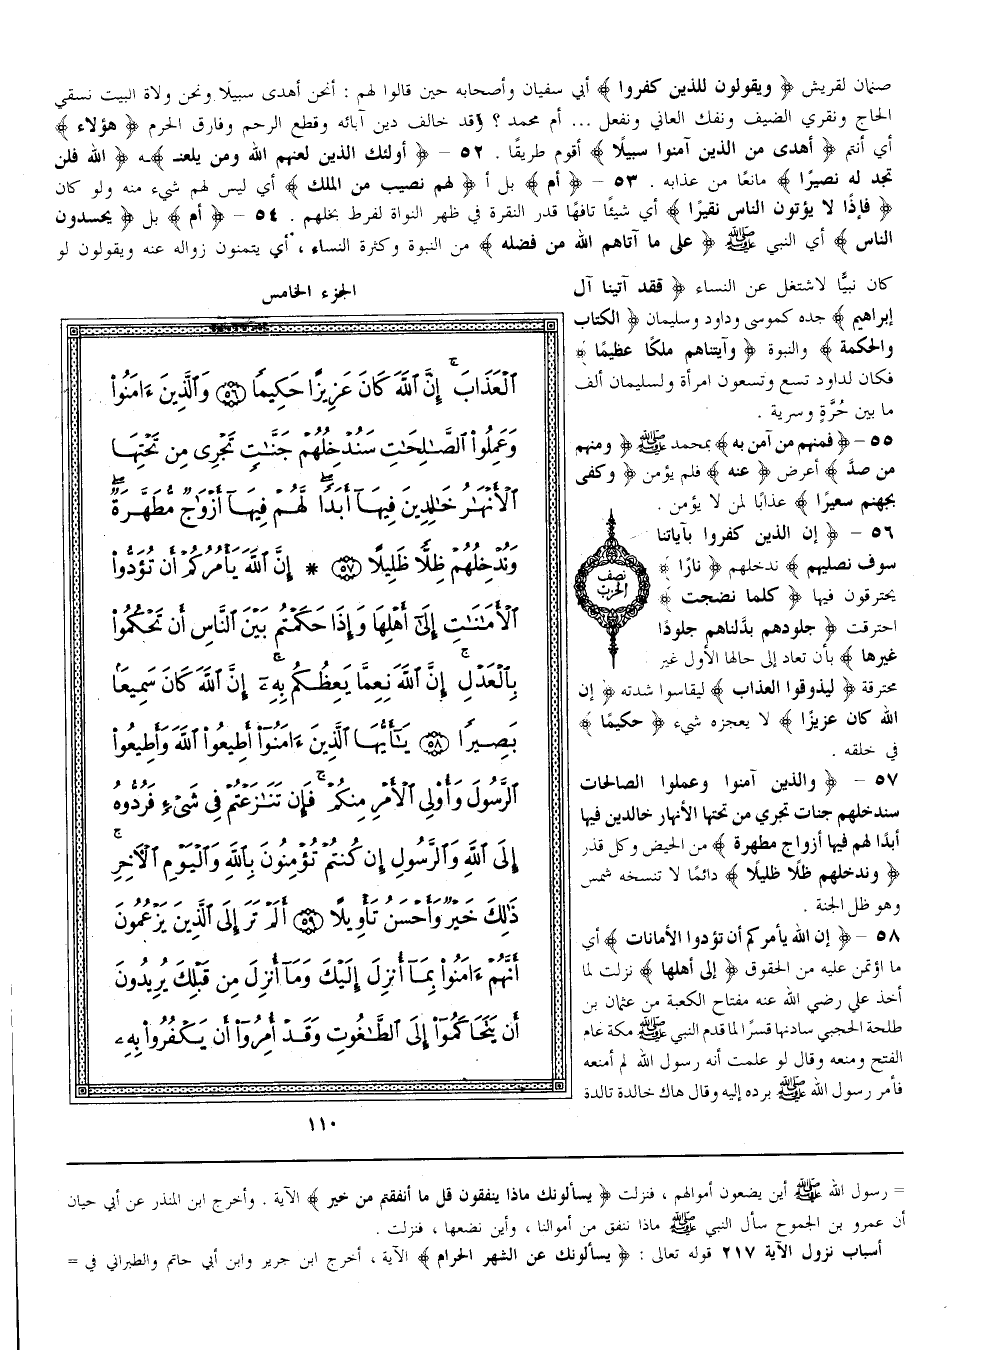 صنمان لقريش ﴿ ويقولون للذين كفروا ﴾ أبي سفيان وأصحابه حين قالوا لهم : أنحن أهدى سبيلًا ونحن ولاة البيت نسقي
الحاج ونقري الضيف ونفك العاني ونفعل ... أم محمد ؟ وقد خالف دين آبائه وقطع الرحم وفارق الحرم ﴿ هؤلاء ﴾
أي أنتم ﴿ أهدى من الذين آمنوا سبيلًا ﴾ أقوم طريقًا . ٥٢ - ﴿ أولئك الذين لعنهم الله ومن يلعنـ ﴾ـه ﴿ الله فلن
تجد له نصيرًا ﴾ مانعًا من عذابه . ٥٣ - ﴿ أم ﴾ بل أ ﴿ لهم نصيب من الملك ﴾ أي ليس لهم شيء منه ولو كان
﴿ فإذًا لا يؤتون الناس نقيرًا ﴾ أي شيئًا تافهًا قدر النقرة في ظهر النواة لفرط بخلهم . ٥٤ - ﴿ أم ﴾ بل ﴿ يحسدون
الناس ﴾ أي النبي ﷺ ﴿ على ما آتاهم الله من فضله ﴾ من النبوة وكثرة النساء ، أي يتمنون زواله عنه ويقولون لو
كان نبيًّا لاشتغل عن النساء ﴿ فقد آتينا آل
إبراهيم ﴾ جده كموسى وداود وسليمان ﴿ الكتاب
والحكمة ﴾ والنبوة ﴿ وآتيناهم ملكًا عظيمًا ﴾
فكان لداود تسع وتسعون امرأة ولسليمان ألف
ما بين حُرَّةٍ وسرية .
٥٥ - ﴿ فمنهم من آمن به ﴾ بمحمد ﷺ ﴿ ومنهم
من صدَّ ﴾ أعرض ﴿ عنه ﴾ فلم يؤمن ﴿ وكفى
بجهنم سعيرًا ﴾ عذابًا لمن لا يؤمن .
٥٦ - ﴿ إن الذين كفروا بآياتنا
سوف نصليهم ﴾ ندخلهم ﴿ نارًا ﴾
يحترقون فيها ﴿ كلما نضجت ﴾
احترقت ﴿ جلودهم بدَّلناهم جلودًا
غيرها ﴾ بأن تعاد إلى حالها الأول غير
محترقة ﴿ ليذوقوا العذاب ﴾ ليقاسوا شدته ﴿ إن
الله كان عزيزًا ﴾ لا يعجزه شيء ﴿ حكيمًا ﴾
في خلقه .
٥٧ - ﴿ والذين آمنوا وعملوا الصالحات
سندخلهم جنات تجري من تحتها الأنهار خالدين فيها
أبدًا لهم فيها أزواج مطهرة ﴾ من الحيض وكل قذر
﴿ وندخلهم ظلًا ظليلًا ﴾ دائمًا لا تنسخه شمس
وهو ظل الجنة .
٥٨ - ﴿ إن الله يأمركم أن تؤدوا الأمانات ﴾ أي
ما اؤتمن عليه من الحقوق ﴿ إلى أهلها ﴾ نزلت لما
أخذ علي رضي الله عنه مفتاح الكعبة من عثمان بن
طلحة الحجبي سادنها قسرًا لما قدم النبي ﷺ مكة عام
الفتح ومنعه وقال لو علمت أنه رسول الله لم أمنعه
فأمر رسول الله ﷺ برده إليه وقال هاك خالدة تالدة
الجزء الخامس
ٱلۡعَذَابَۗ إِنَّ ٱللَّهَ كَانَ عَزِيزًا حَكِيمٗا ﴿٥٦﴾ وَٱلَّذِينَ ءَامَنُواْ
وَعَمِلُواْ ٱلصَّٰلِحَٰتِ سَنُدۡخِلُهُمۡ جَنَّٰتٖ تَجۡرِي مِن تَحۡتِهَا
ٱلۡأَنۡهَٰرُ خَٰلِدِينَ فِيهَآ أَبَدٗاۖ لَّهُمۡ فِيهَآ أَزۡوَٰجٞ مُّطَهَّرَةٞۖ
وَنُدۡخِلُهُمۡ ظِلّٗا ظَلِيلًا ﴿٥٧﴾ * إِنَّ ٱللَّهَ يَأۡمُرُكُمۡ أَن تُؤَدُّواْ
ٱلۡأَمَٰنَٰتِ إِلَىٰٓ أَهۡلِهَا وَإِذَا حَكَمۡتُم بَيۡنَ ٱلنَّاسِ أَن تَحۡكُمُواْ
بِٱلۡعَدۡلِۚ إِنَّ ٱللَّهَ نِعِمَّا يَعِظُكُم بِهِۦٓۗ إِنَّ ٱللَّهَ كَانَ سَمِيعَۢا
بَصِيرٗا ﴿٥٨﴾ يَٰٓأَيُّهَا ٱلَّذِينَ ءَامَنُوٓاْ أَطِيعُواْ ٱللَّهَ وَأَطِيعُواْ
ٱلرَّسُولَ وَأُوْلِي ٱلۡأَمۡرِ مِنكُمۡۖ فَإِن تَنَٰزَعۡتُمۡ فِي شَيۡءٖ فَرُدُّوهُ
إِلَى ٱللَّهِ وَٱلرَّسُولِ إِن كُنتُمۡ تُؤۡمِنُونَ بِٱللَّهِ وَٱلۡيَوۡمِ ٱلۡأٓخِرِۚ
ذَٰلِكَ خَيۡرٞ وَأَحۡسَنُ تَأۡوِيلًا ﴿٥٩﴾ أَلَمۡ تَرَ إِلَى ٱلَّذِينَ يَزۡعُمُونَ
أَنَّهُمۡ ءَامَنُواْ بِمَآ أُنزِلَ إِلَيۡكَ وَمَآ أُنزِلَ مِن قَبۡلِكَ يُرِيدُونَ
أَن يَتَحَاكَمُوٓاْ إِلَى ٱلطَّٰغُوتِ وَقَدۡ أُمِرُوٓاْ أَن يَكۡفُرُواْ بِهِۦ
نصف
الحزب
١١٠
= رسول الله ﷺ أين يضعون أموالهم ، فنزلت ﴿ يسألونك ماذا ينفقون قل ما أنفقتم من خير ﴾ الآية . وأخرج ابن المنذر عن أبي حيان
أن عمرو بن الجموح سأل النبي ﷺ ماذا ننفق من أموالنا ، وأين نضعها ، فنزلت .
أسباب نزول الآية ٢١٧ قوله تعالى : ﴿ يسألونك عن الشهر الحرام ﴾ الآية ، أخرج ابن جرير وابن أبي حاتم والطبراني في =